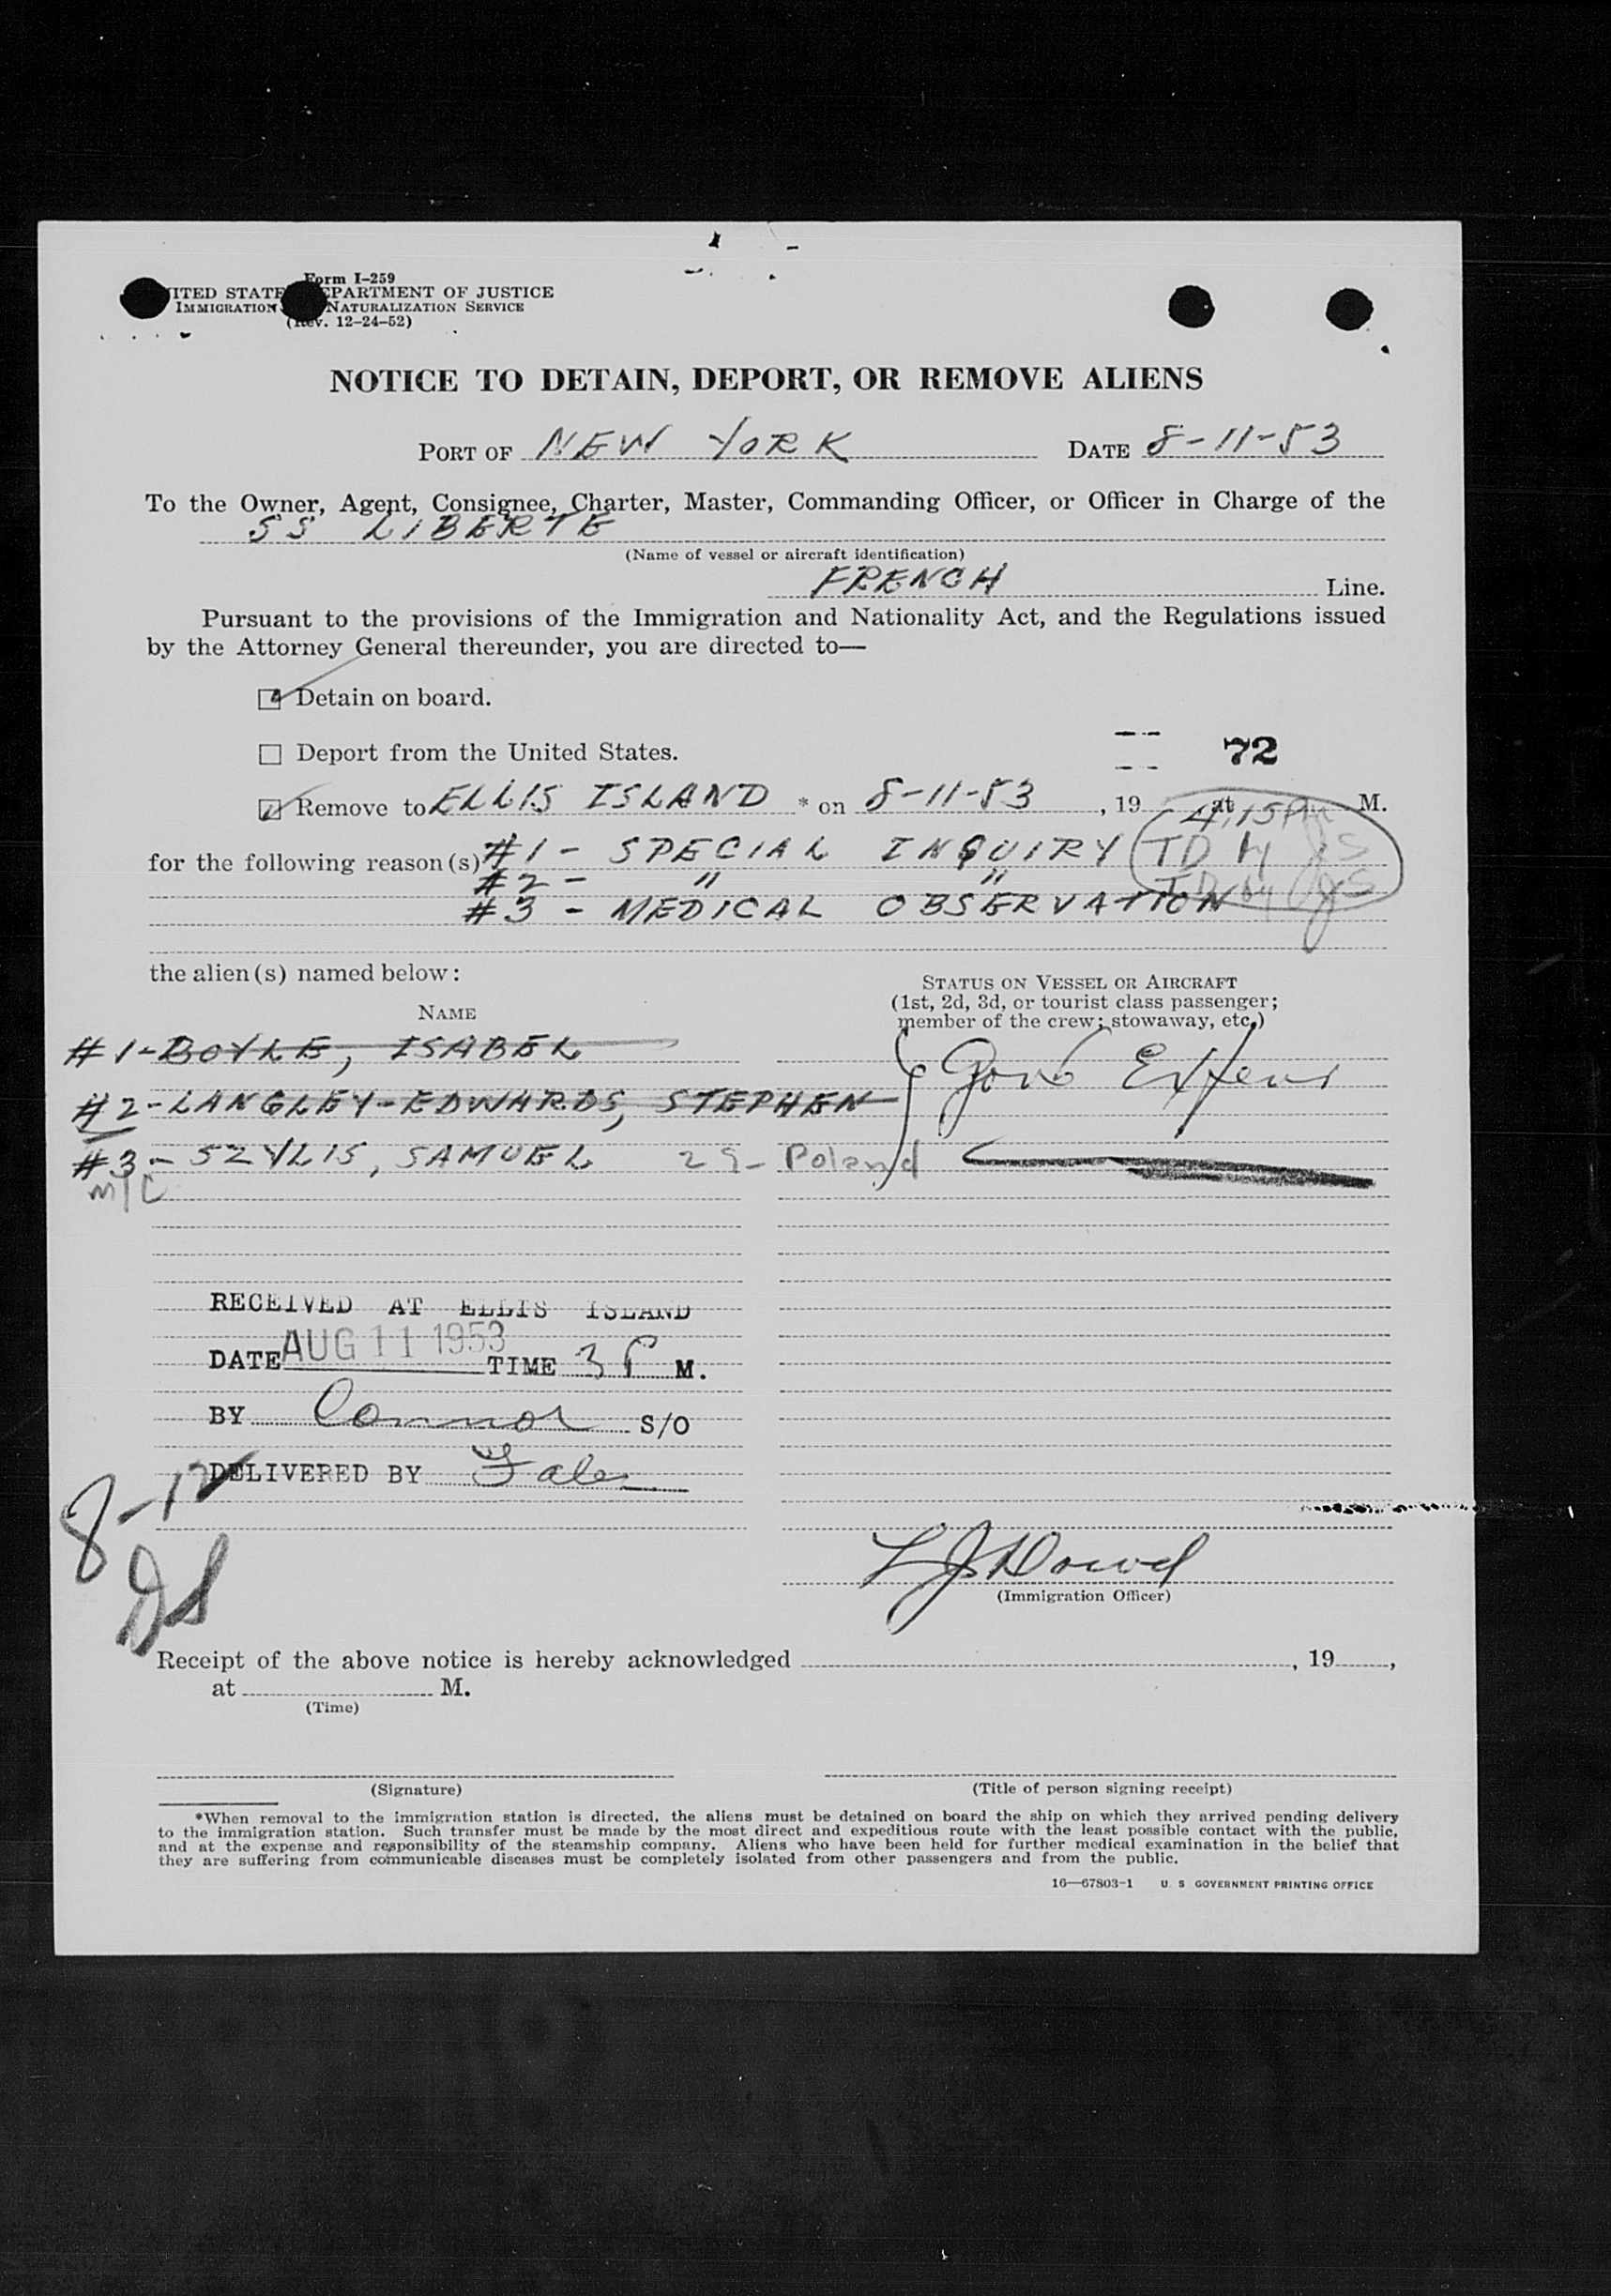 Form I-259
ITED STATE EPARTMENT OF JUSTICE
IMMIGRATION NATURALIZATION SERVICE
(Rev. 12-24-52)
NOTICE TO DETAIN, DEPORT, OR REMOVE ALIENS
PORT OF NEW YORK DATE 8-11-53
To the Owner, Agent, Consignee, Charter, Master, Commanding Officer, or Officer in Charge of the
SS LIBERTE
(Name of vessel or aircraft identification)
FRENCH Line.
Pursuant to the provisions of the Immigration and Nationality Act, and the Regulations issued
by the Attorney General thereunder, you are directed to—
Detain on board.
Deport from the United States.
72
Remove to ELLIS ISLAND * on 8-11-53, 19 at M.
4:15 PM
for the following reason(s) #1 - SPECIAL INQUIRY TD by JS
#2 - " " TD by JS
#3 - MEDICAL OBSERVATION
the alien(s) named below:
STATUS ON VESSEL OR AIRCRAFT
(1st, 2d, 3d, or tourist class passenger;
member of the crew; stowaway, etc.)
NAME
#1-BOYLE, ISABEL
Gov Expens
#2-LANGLEY-EDWARDS, STEPHEN
#3-SZYLIS, SAMUEL 29- Poland
m/c
RECEIVED AT ELLIS ISLAND
DATE AUG 11 1953 TIME 3 P M.
BY Connor S/O
DELIVERED BY
8-12
L J Dowd
(Immigration Officer)
Receipt of the above notice is hereby acknowledged , 19 ,
at M.
(Time)
(Signature)
(Title of person signing receipt)
*When removal to the immigration station is directed, the aliens must be detained on board the ship on which they arrived pending delivery
to the immigration station. Such transfer must be made by the most direct and expeditious route with the least possible contact with the public,
and at the expense and responsibility of the steamship company. Aliens who have been held for further medical examination in the belief that
they are suffering from communicable diseases must be completely isolated from other passengers and from the public.
16—67803-1 U. S GOVERNMENT PRINTING OFFICE